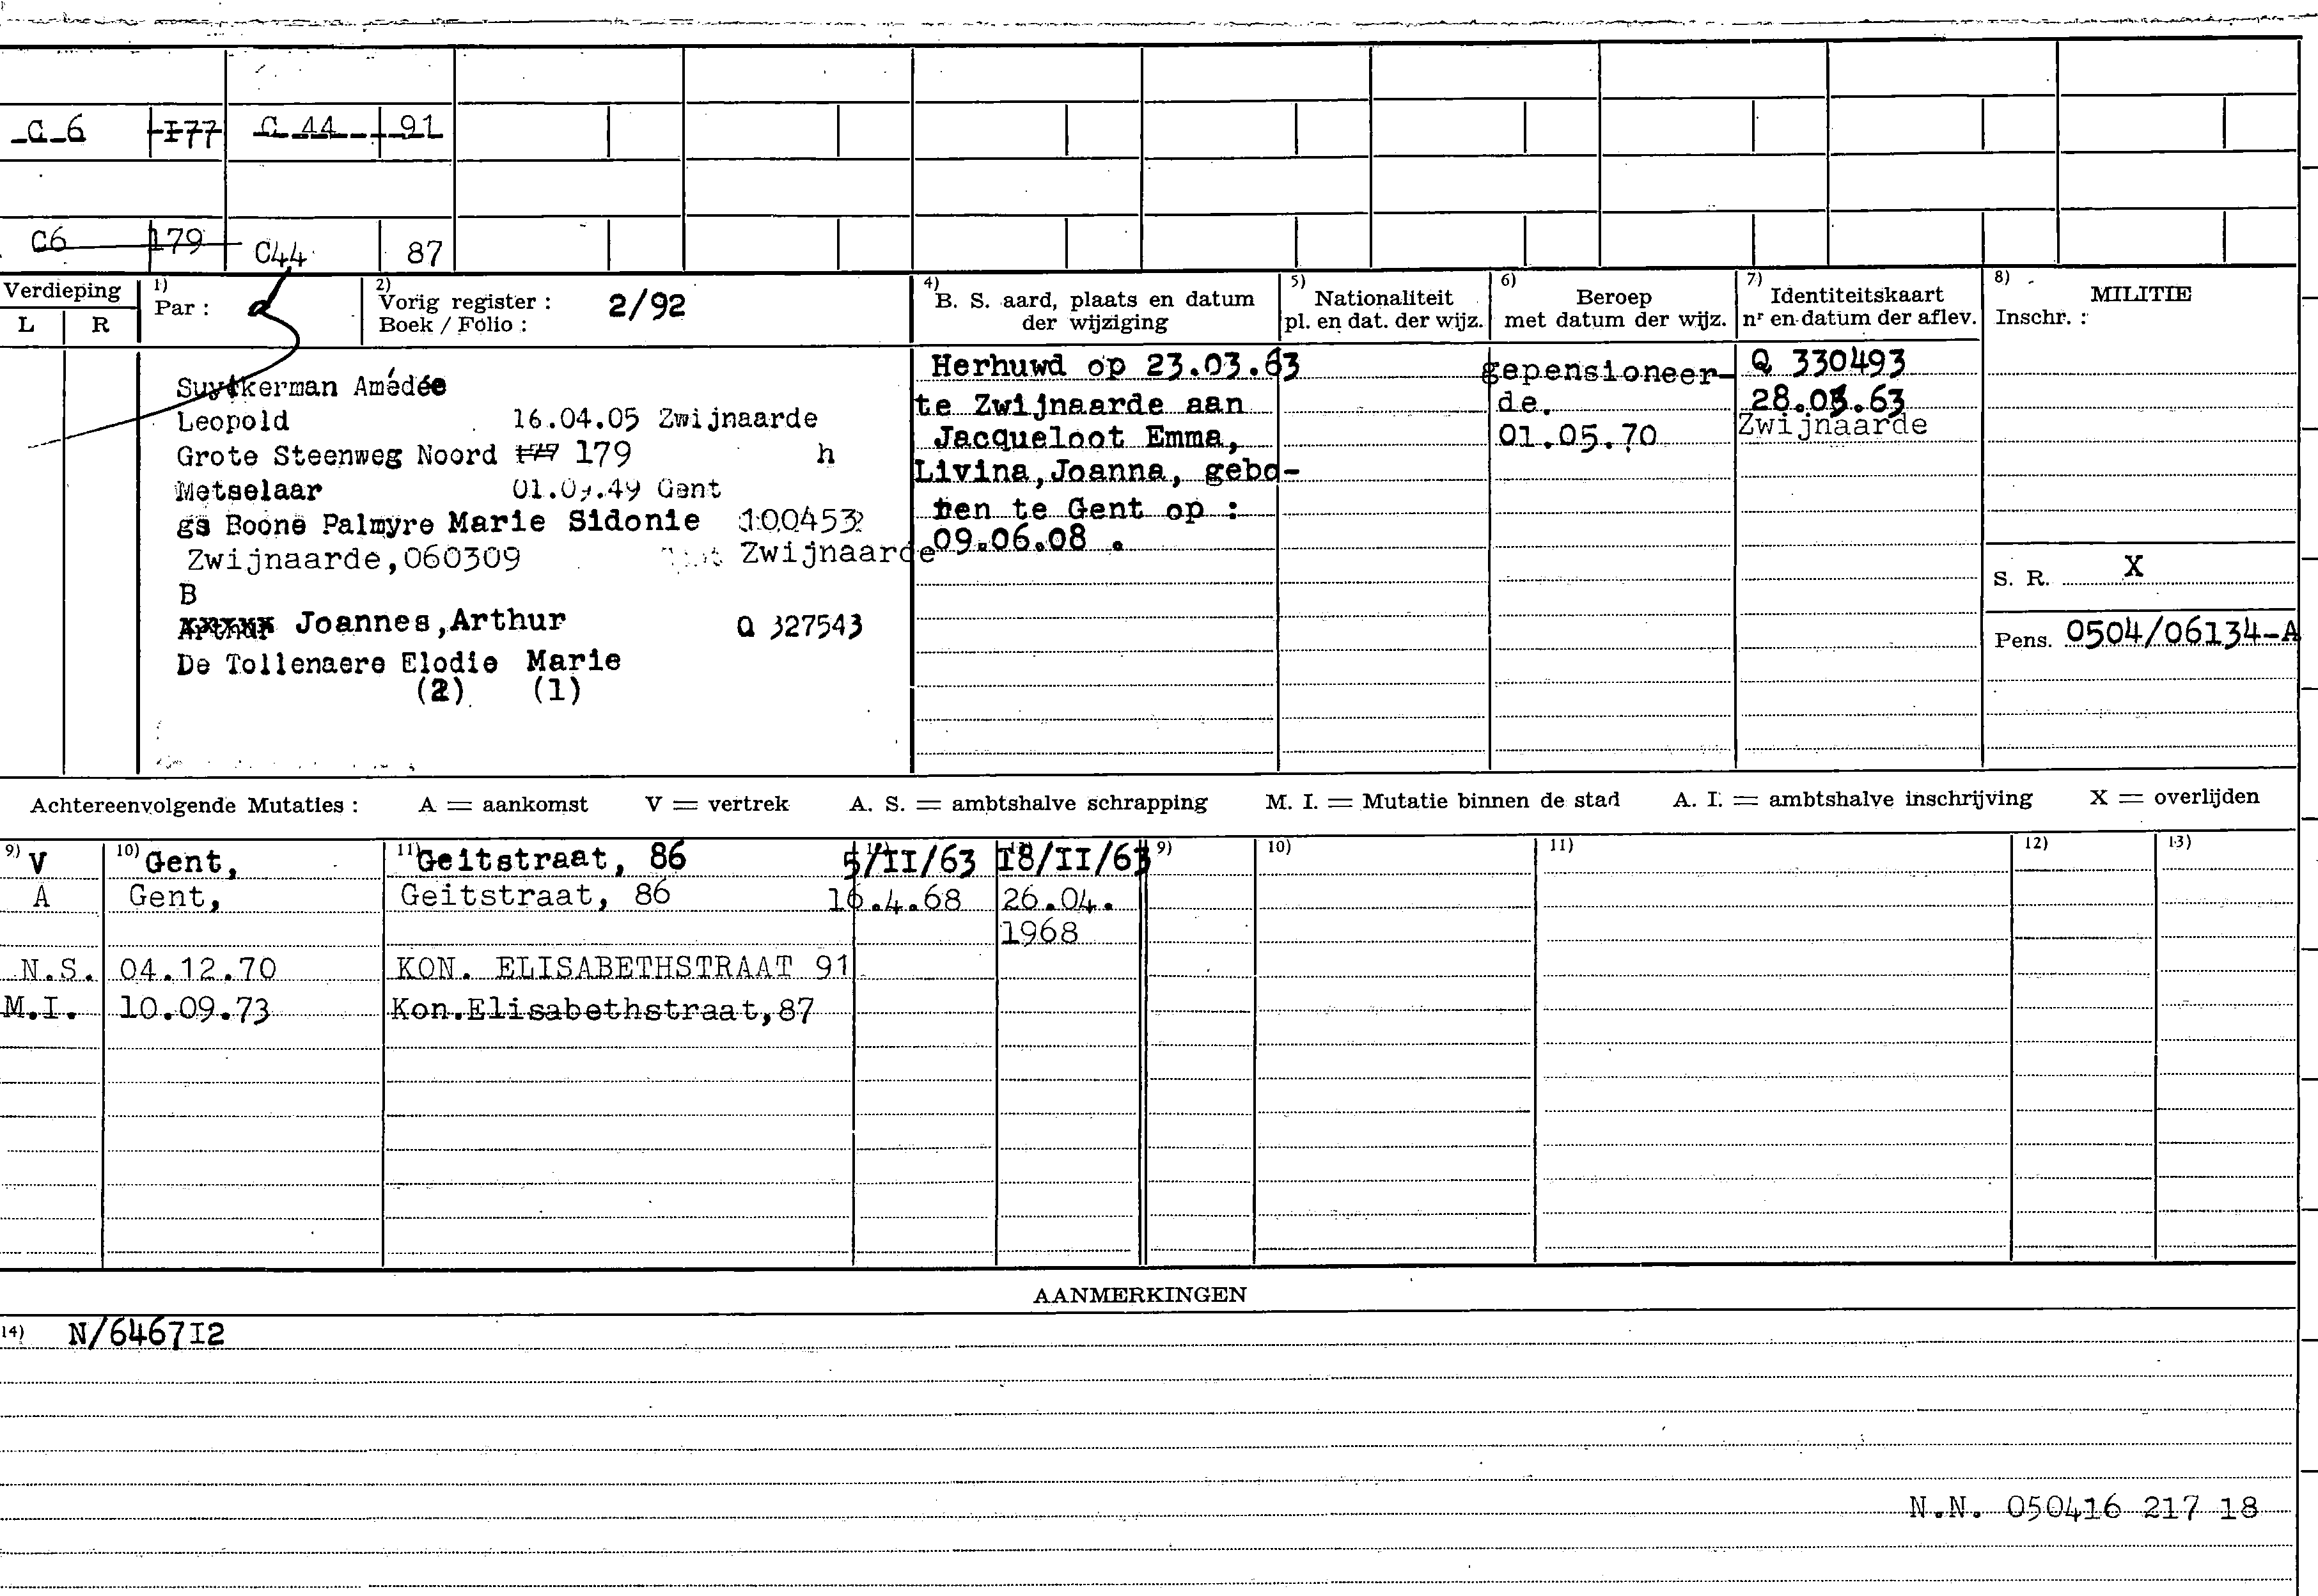 C 6 I77 C 44 91
C6 179 C44 87
Verdieping
L R
1) Par :
2) Vorig register : 2/92
Boek / Folio :
4) B. S. aard, plaats en datum
der wijziging
5) Nationaliteit
pl. en dat. der wijz.
6) Beroep
met datum der wijz.
7) Identiteitskaart
nr en datum der aflev.
8) MILITIE
Inschr. :
Suykerman Amédée
Leopold 16.04.05 Zwijnaarde
Grote Steenweg Noord 177 179 h
Metselaar Gent
gs Boone Palmyre Marie Sidonie 100453
Zwijnaarde,060309 Zwijnaarde
B
Arthur Joannes,Arthur Q 327543
De Tollenaere Elodie Marie
(2) (1)
Herhuwd op 23.03.63
te Zwijnaarde aan
Jacqueloot Emma,
Livina,Joanna, gebo-
ren te Gent op :
09.06.08 .
gepensioneer-
de.
01.05.70
Q 330493
28.03.63
Zwijnaarde
S. R. X
Pens. 0504/06134-A
Achtereenvolgende Mutaties : A = aankomst V = vertrek A. S. = ambtshalve schrapping M. I. = Mutatie binnen de stad A. I. = ambtshalve inschrijving X = overlijden
9) V 10) Gent, 11) Geitstraat, 86 5/II/63 18/II/63 9) 10) 11) 12) 13)
A Gent, Geitstraat, 86 16.4.68 26.04.
1968
N.S. 04.12.70 KON. ELISABETHSTRAAT 91
M.I. 10.09.73 Kon.Elisabethstraat,87
AANMERKINGEN
14) N/6467I2
N.N. 050416 217 18